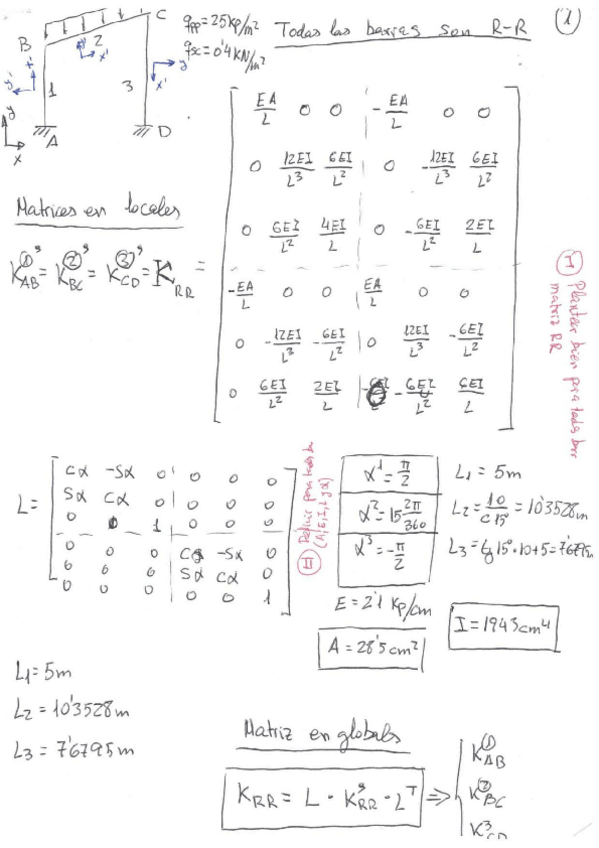 1
q_pp = 25 Kp/m²
q_sc = 0'4 KN/m²
Todas las barras son R-R
B
C
A
D
1
2
3
x'
y'
x'
y'
x'
x
y
Matrices en locales
K_AB^①' = K_BC^②' = K_CD^③' = K_RR =
EA/L 0 0 -EA/L 0 0
0 12EI/L³ 6EI/L² 0 -12EI/L³ 6EI/L²
0 6EI/L² 4EI/L 0 -6EI/L² 2EI/L
-EA/L 0 0 EA/L 0 0
0 -12EI/L³ -6EI/L² 0 12EI/L³ -6EI/L²
0 6EI/L² 2EI/L -6EI/L² 6EI/L
I Plantear bien para todas barr
matriz RR
L =
Cα -Sα 0 0 0 0
Sα Cα 0 0 0 0
0 0 1 0 0 0
0 0 0 Cα -Sα 0
0 0 0 Sα Cα 0
0 0 0 0 0 1
II para
(A, E, I, L y α)
α¹ = π/2
α² = 15 2π/360
α³ = -π/2
L1 = 5m
L2 = 10/C15° = 10'3528m
L3 = tg15°·10+5 = 7'6795m
E = 2'1 Kp/cm
A = 28'5 cm²
I = 1943 cm⁴
L1 = 5m
L2 = 10'3528m
L3 = 7'6795m
Matriz en globales
K_RR = L · K'_RR · L^T ⇒
K_AB^①
K_BC^②
K_CD^3